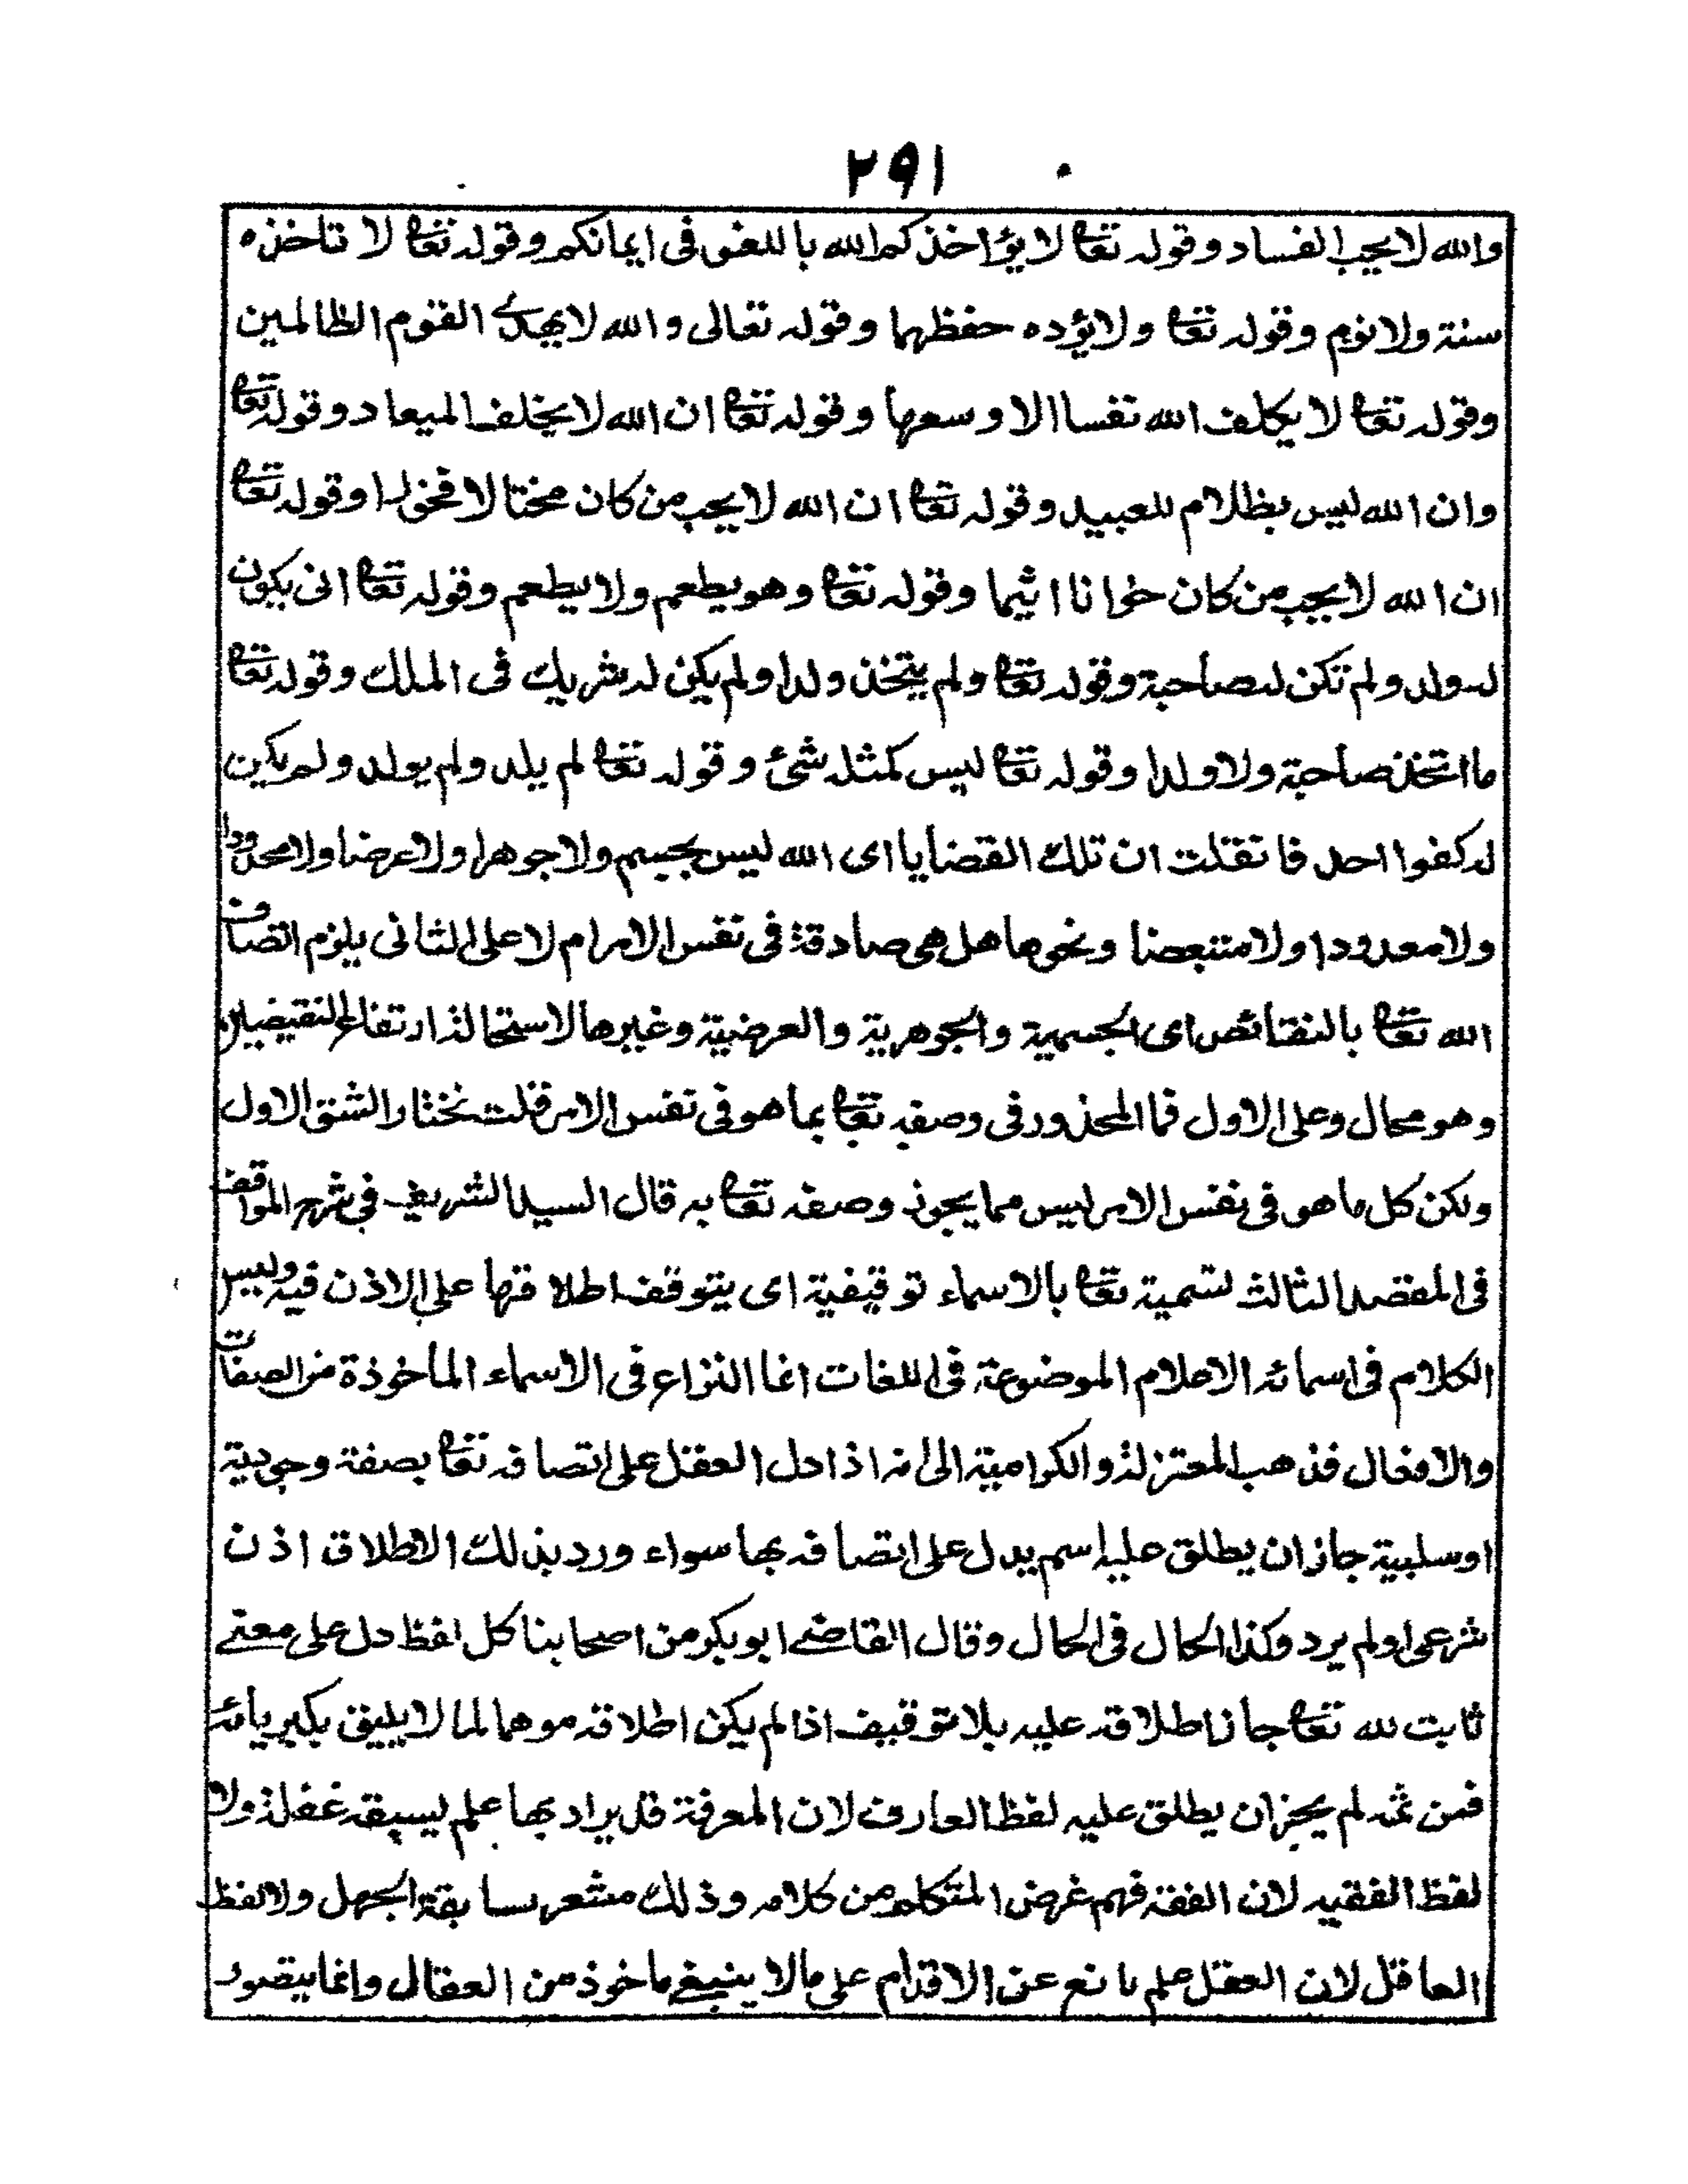 ٢٩١
والله لا يحب الفساد وقوله تعا لا يؤاخذكم الله باللغو فى ايمانكم وقوله تعا لا تاخذه
سنة ولا نوم وقوله تعا ولا يؤده حفظهما وقوله تعالى والله لا يهدى القوم الظالمين
وقوله تعا لا يكلف الله نفسا الا وسعها وقوله تعا ان الله لا يخلف الميعاد وقوله تعا
وان الله ليس بظلام للعبيد وقوله تعا ان الله لا يحب من كان مختالا فخورا وقوله تعا
ان الله لا يحب من كان خوانا اثيما وقوله تعا وهو يطعم ولا يطعم وقوله تعا انى يكون
له ولد ولم تكن له صاحبة وقوله تعا ولم يتخذ ولدا ولم يكن له شريك فى الملك وقوله تعا
ما اتخذ صاحبة ولا ولدا وقوله تعا ليس كمثله شئ وقوله تعا لم يلد ولم يولد ولم يكن
له كفوا احد فا نقلت ان تلك القضايا اى الله ليس بجسم ولا جوهرا ولا عرضا ولا محدودا
ولا معدودا ولا متبعضا ونحوها هل هى صادقة فى نفس الامر ام لا على الثانى يلزم اتصاف
الله تعا بالنقائص اى الجسمية والجوهرية والعرضية وغيرها لاستحالة ارتفاع النقيضين
وهو محال وعلى الاول فما المحذور فى وصفه تعا بما هو فى نفس الامر قلت نختار الشق الاول
ولكن كل ما هو فى نفس الامر ليس مما يجوز وصفه تعا به قال السيد الشريف فى شرح المواقف
فى المقصد الثالث تسمية تعا بالاسماء توقيفية اى يتوقف اطلاقها على الاذن فيه وليس
الكلام فى اسمائه الاعلام الموضوعة فى اللغات انما النزاع فى الاسماء المأخوذة من الصفات
والافعال فذهب المعتزلة والكرامية الى انه اذا دل العقل على اتصافه تعا بصفة وجودية
او سلبية جاز ان يطلق عليه اسم يدل على اتصافه بها سواء ورد بذلك الاطلاق اذن
شرعى او لم يرد وكذا الحال فى الحال وقال القاضى ابو بكر من اصحابنا كل لفظ دل على معنى
ثابت لله تعا جاز اطلاقه عليه بلا توقيف اذا لم يكن اطلاقه موهما لما لا يليق بكبريائه
فمن ثمه لم يجز ان يطلق عليه لفظ العارف لان المعرفة قد يراد بها علم يسبقه غفلة ولا
لفظ الفقيه لان الفقه فهم غرض المتكلم من كلامه وذلك مشعر بسابقة الجهل ولا لفظ
العاقل لان العقل علم مانع عن الاقدام على ما لا ينبغى ماخوذ من العقال وانما يتصور